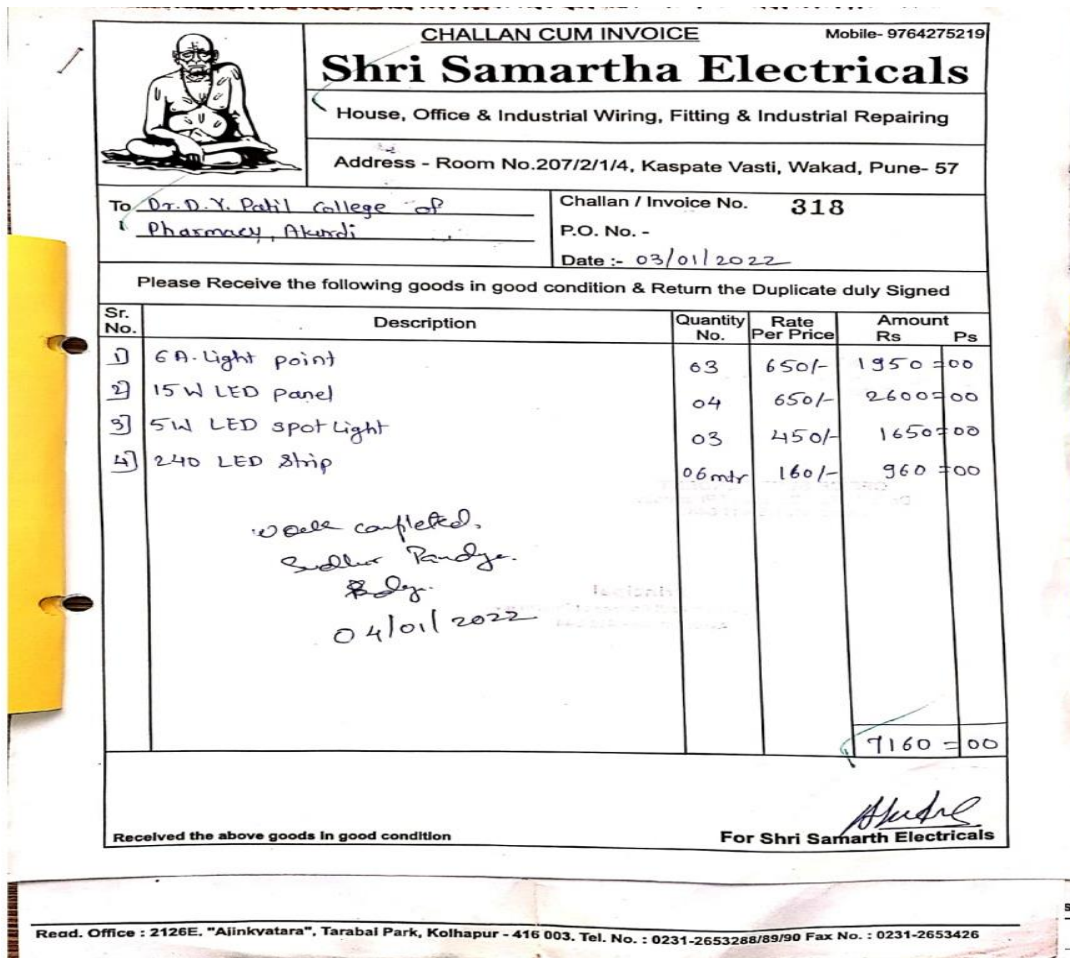 CHALLAN CUM INVOICE
Mobile- 9764275219
Shri Samartha Electricals
House, Office & Industrial Wiring, Fitting & Industrial Repairing
Address - Room No.207/2/1/4, Kaspate Vasti, Wakad, Pune- 57
To Dr. D. Y. Patil College of
Pharmacy, Akurdi
Challan / Invoice No. 318
P.O. No. -
Date :- 03/01/2022
Please Receive the following goods in good condition & Return the Duplicate duly Signed
Sr. No. Description Quantity No. Rate Per Price Amount Rs Ps
1] 6 A. Light point 03 650/- 1950=00
2] 15 W LED Panel 04 650/- 2600=00
3] 5W LED Spot Light 03 450/- 1650=00
4] 240 LED Strip 06 mtr 160/- 960=00
work completed.
04/01/2022
7160=00
Received the above goods in good condition
For Shri Samarth Electricals
Regd. Office : 2126E, "Ajinkyatara", Tarabai Park, Kolhapur - 416 003. Tel. No. : 0231-2653288/89/90 Fax No. : 0231-2653426